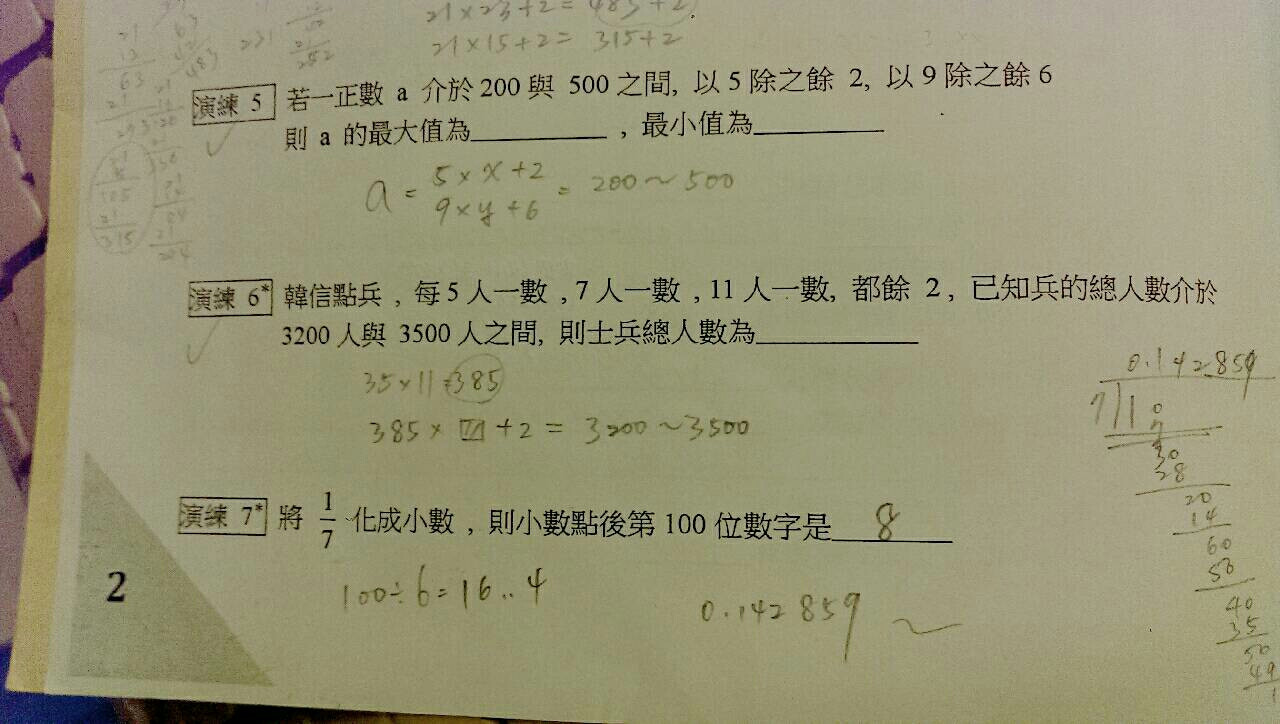 21×23+2= 483+2
21×15+2= 315+2
231
演練 5 若一正數 a 介於 200 與 500 之間, 以 5 除之餘 2, 以 9 除之餘 6
則 a 的最大值為__________ , 最小值為__________
a = 5×x+2 = 200～500
9×y+6
演練 6* 韓信點兵 , 每 5 人一數 , 7 人一數 , 11 人一數, 都餘 2 , 已知兵的總人數介於
3200 人與 3500 人之間, 則士兵總人數為__________
35×11=385
385× +2 = 3200～3500
0.142859
7 1 0
7
30
28
20
14
60
56
40
35
50
49
1
演練 7* 將 1/7 化成小數 , 則小數點後第 100 位數字是 8
100÷6=16..4
0.142859 ～
2